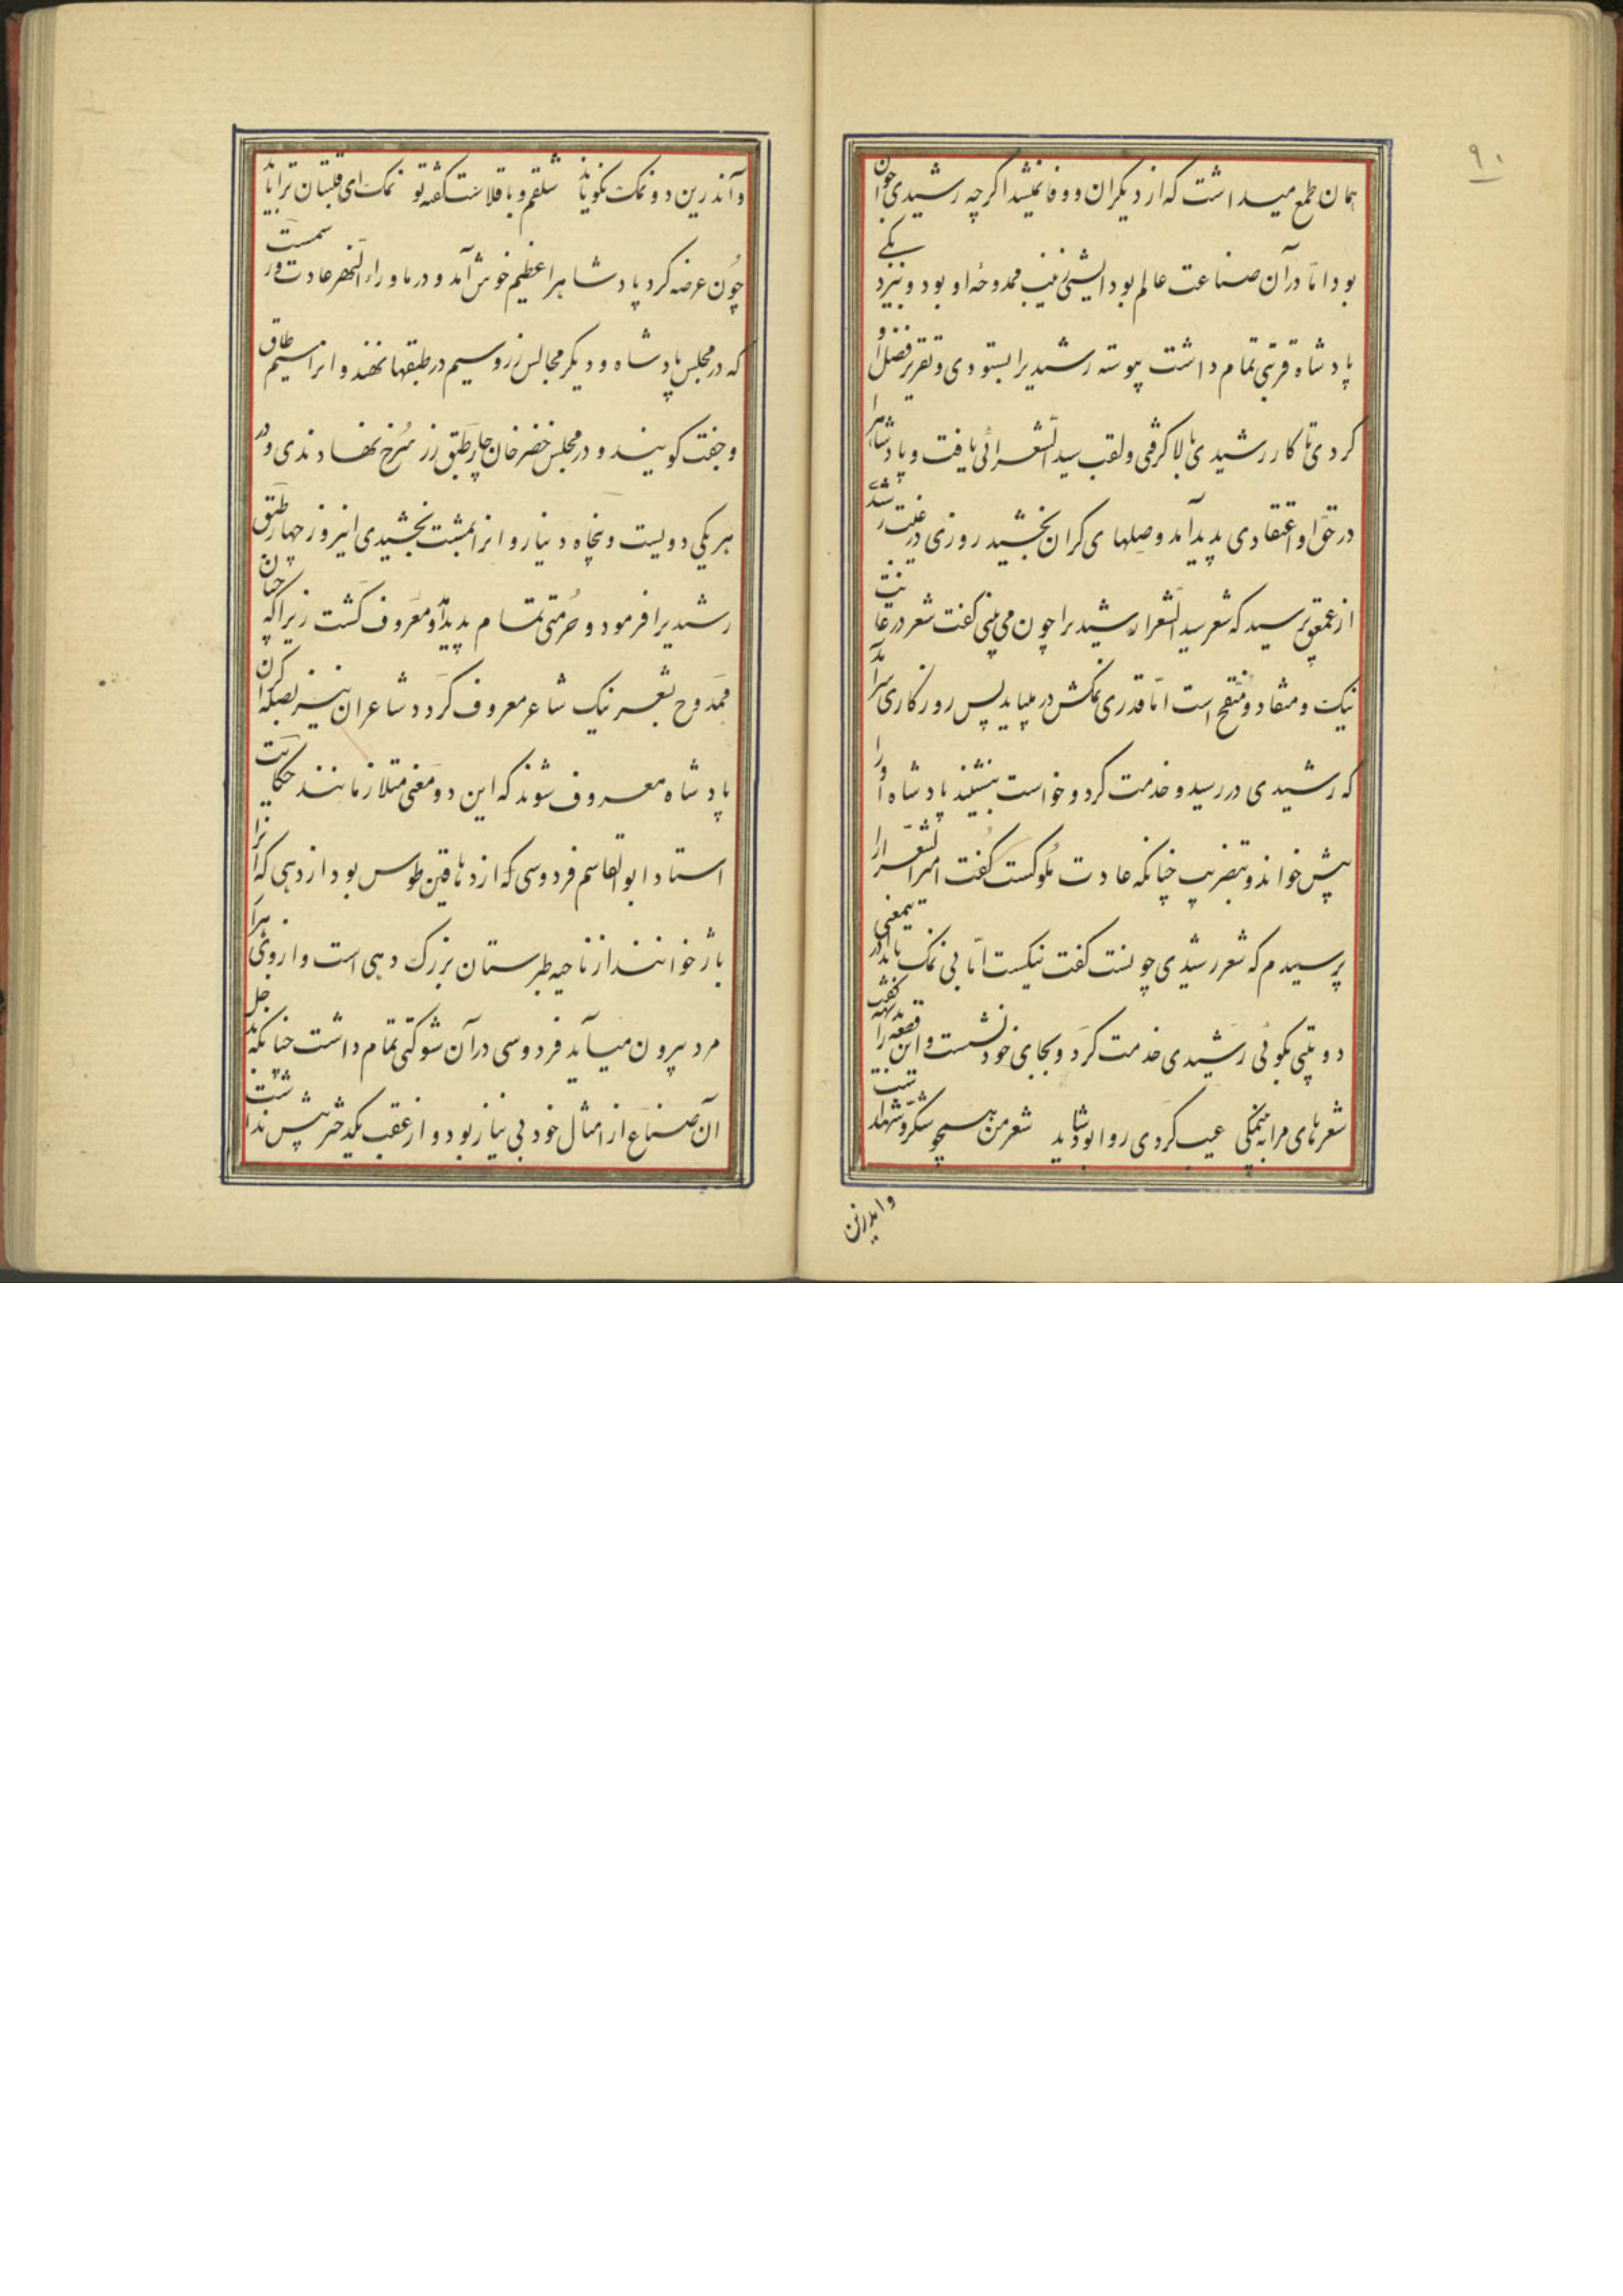 ۹۰
همان طمع میداشت که از دیکران و وفا نمیشد اکرچه رشیدی جوان
بود امّا در آن صناعت عالم بود الستی زینب ممدوحهٔ او بود و نزد یکی
پادشاه قربتی تمام داشت پیوسته رشیدیرا بستودی و تقریر فضل او
کردی تا کار رشیدی بالا کرفتی و لقب سیدالشعرائی یافت و پادشاهرا
در حقّ او اعتقادی پدید آمد و صلهای کران بخشید روزی در غیبت رشیدی
از عمعق پرسید که شعر سیدالشعرا رشیدیرا چون می بینی کفت شعر در غایت
نیک و منقاد و منقّح است امّا قدری نمکش در میباید پس روزکاری برآمد
که رشیدی در رسید و خدمت کرد و خواست بنشیند پادشاه او را
پیش خواند و بتضریب چنانکه عادت ملوکست کفت امیرالشعرا را
پرسیدم که شعر رشیدی چونست کفت نیکست امّا بی نمک باید در یمعنی
دو بیتی بکوئی رشیدی خدمت کرد و بجای خود نشست و این قطعه را بدیهه کفت
شعرهای مرا به بینمکی عیب کردی روا بود شاید شعر من همچو شکر و شهد است
وایدرین
و اندرین دو نمک نکو ناید شلقم و باقلاست کفته تو نمک ای قلتبان ترا باید
چون عرضه کرد پادشاهرا عظیم خوش آمد و در ماوراءالنهر عادت و رسمست
که در مجلس پادشاه و دیکر مجالس زر و سیم در طبقها نهند و انرا سیم طاق
و جفت کویند و در مجلس خضرخان چار طبق زر سُرخ نهادندی و در
هر یکی دویست و پنجاه دینار و انرا بمشت بخشیدی انروز چهار طبق
رشیدیرا فرمود و حُرمتی تمام پدید آمد و معروف کشت زیرا که چنان
ممدوح بشعر نیک شاعر معروف کردد شاعران نیز بصلهٔ کران
پادشاه معروف شوند که این دو معنی متلازمانند حکایت
استاد ابوالقاسم فردوسی که از دهاقین طوس بود از دهی که انرا
باژ خوانند از ناحیه طبرستان بزرک دهی است و از وی هزار
مرد بیرون میآید فردوسی در آن شوکتی تمام داشت چنانکه بدخل
آن ضیاع از امثال خود بی نیاز بود و از عقب یکدختر بیش نداشت